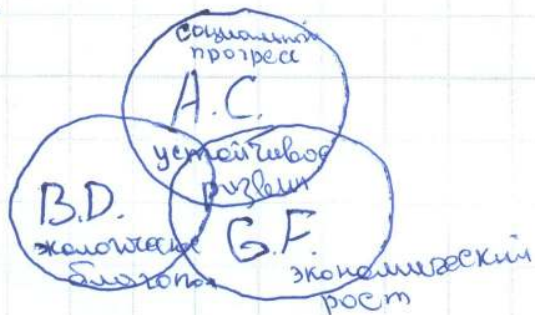 социальный
прогресс
A.C.
устойчивое
развит
B.D.
G.F.
экологическое
благопол
экономический
рост